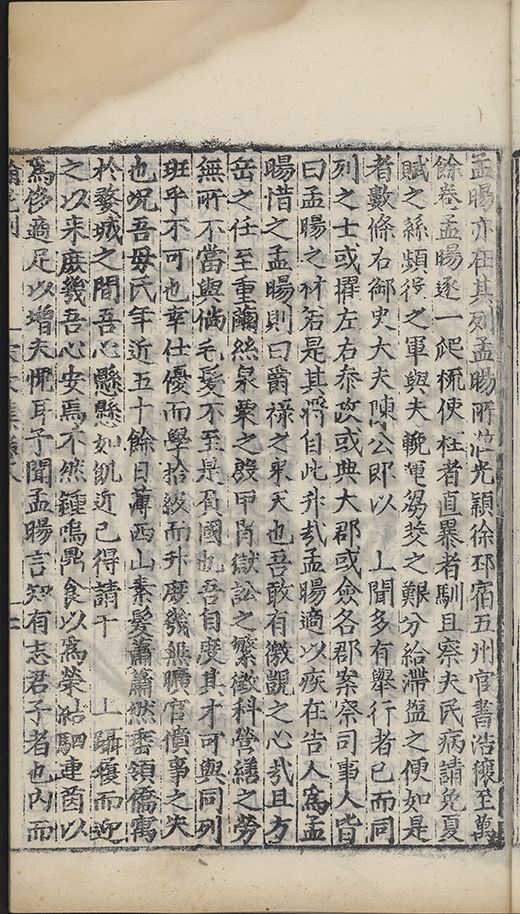 孟暘亦在其列孟暘所涖光穎徐邳宿五州官書浩穰至萬
餘卷孟暘逐一爬梳使枉者直暴者馴且察夫民病請免夏
賦之絲蘋停之軍與夫輓運芻茭之艱分給滯盜之便如是
者數條右御史大夫陳公即以 上聞多有舉行者已而同
列之士或擢左右叅政或典大郡或僉各郡案察司事人皆
曰孟暘之材若是其將自此升哉孟暘適以疾在告人爲孟
暘惜之孟暘則曰爵祿之來天也吾敢有徼覬之心哉且方
岳之任至重繭然泉粟之殷甲胄獄訟之繁徵科營繕之勞
無所不當與倘毛髮不至是負國也吾自度其才可與同列
班乎不可也幸仕優而學拾級而升庶幾無曠官僨事之失
也况吾母氏年近五十餘日薄西山素髮蕭蕭然垂領僑寓
於婺城之間吾心懸懸如飢近已得請于 上躡屩而迎
之以来庶幾吾心安焉不然鍾鳴鼎食以爲榮結駟連茵以
爲侈適足以增夫愧耳予聞孟暘言知有志君子者也内而